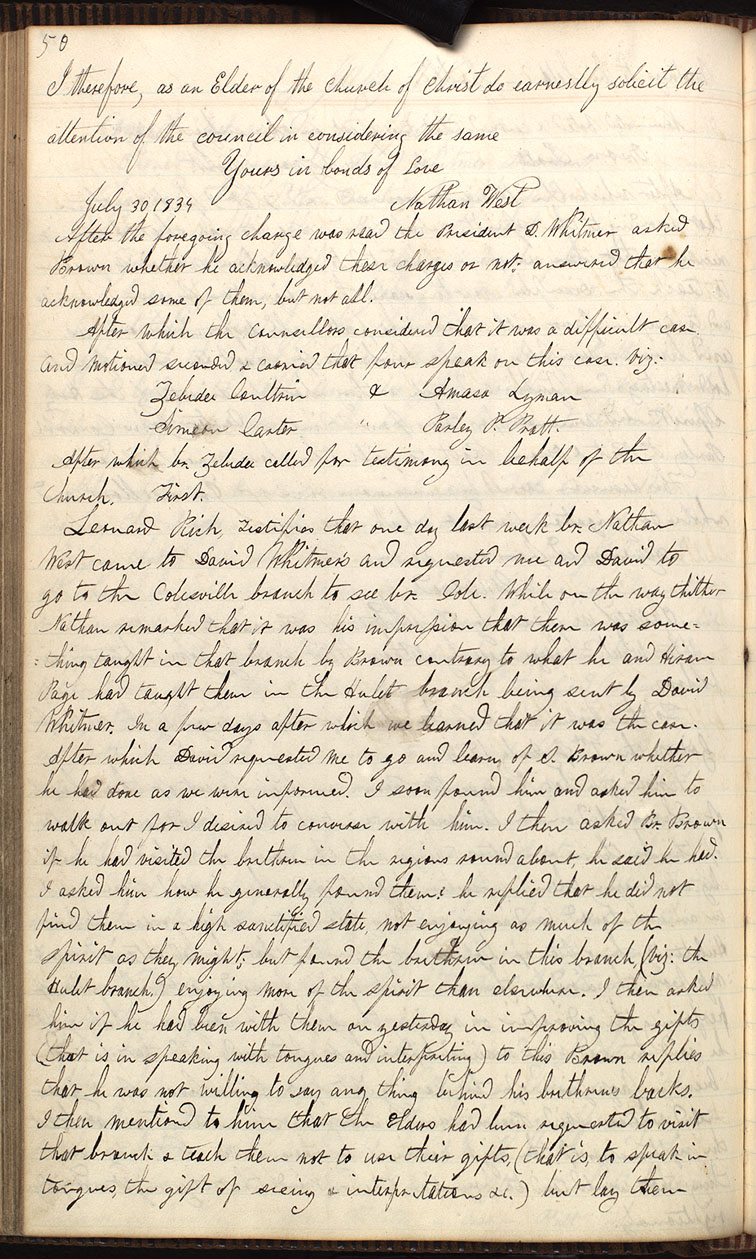 50
I therefore, as an Elder of the church of Christ do earnestly solicit the
attention of the council in considering the same
Yours in bonds of Love
July 30 1834 Nathan West
After the foregoing charge was read the President D. Whitmer asked
Brown whether he acknowledged these charges or not: answered that he
acknowledged some of them, but not all.
After which the Counsellors considered that it was a difficult case
and motioned seconded & carried that four speak on this case. Viz:-
Zebedee Coultrin & Amasa Lyman
Simeon Carter " Parley P. Pratt.
After which br. Zebedee called for testimony in behalf of the
Church. First.
Leonard Rich, Testifies that one day last week br. Nathan
West came to David Whitmer's and requested me and David to
go to the Colesville branch to see br. Cole. While on the way thither
Nathan remarked that it was his impression that there was some=
=thing taught in that branch by Brown contrary to what he and Hiram
Page had taught them in the Hulet branch being sent by David
Whitmer. In a few days after which we learned that it was the case.
After which David requested me to go and learn of S. Brown whether
he had done as we were informed. I soon found him and asked him to
walk out for I desired to converse with him. I then asked Br. Brown
if he had visited the brethren in the regions round about, he said he had.
I asked him how he generally found them? he replied that he did not
find them in a high sanctified state, not enjoying as much of the
spirit as they might; but found the brethren in this branch (viz: the
Hulet branch.) enjoying more of the spirit than elsewhere. I then asked
him if he had been with them on yesterday in improving the gifts
(that is in speaking with tongues and interpreting) to this Brown replies
that he was not willing to say any thing behind his brethren's backs.
I then mentioned to him that the Elders had been requested to visit
that branch & teach them not to use their gifts, (that is, to speak in
tongues, the gift of seeing & interpretations &c.) but lay them